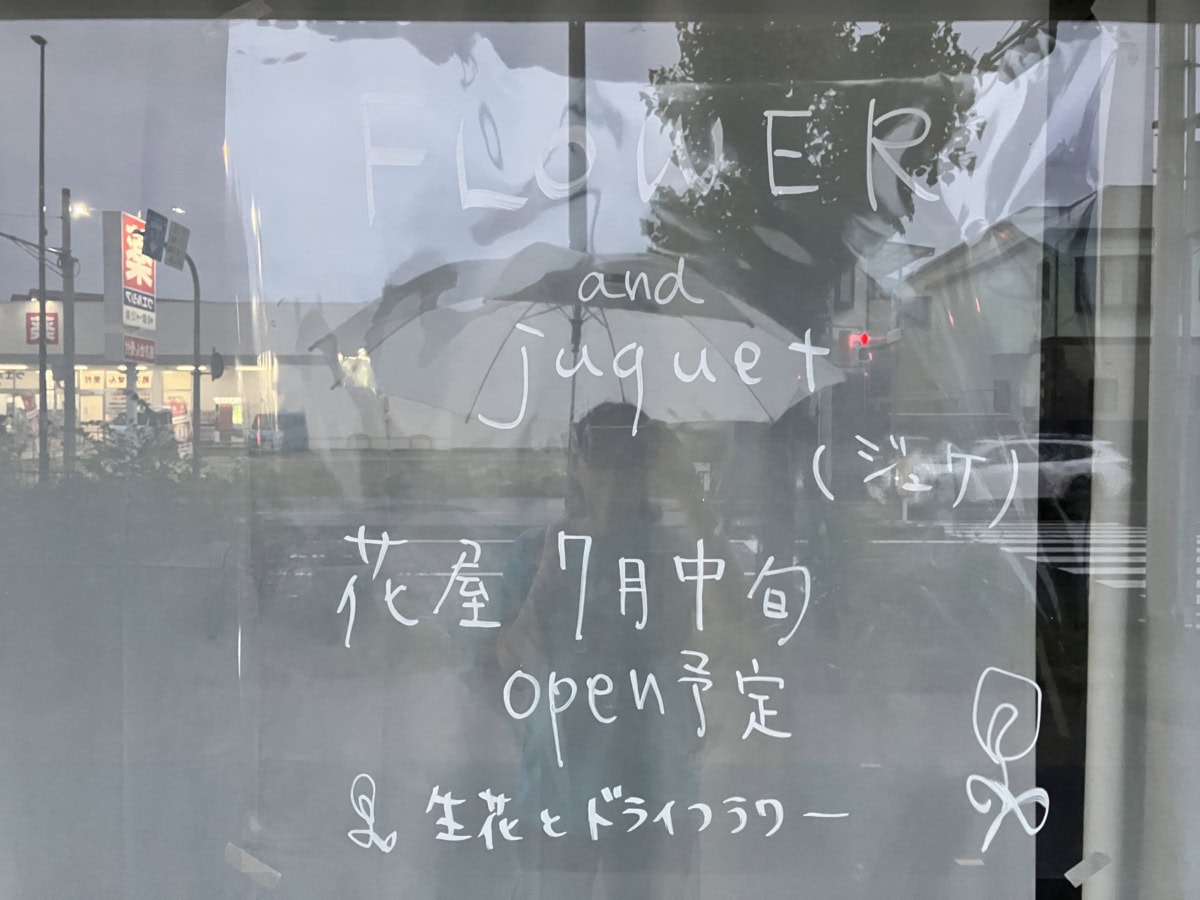 FLOWER
and
juquet
(ジュケ)
花屋 7月中旬
open予定
生花とドライフラワー
薬
ウエルシア
薬